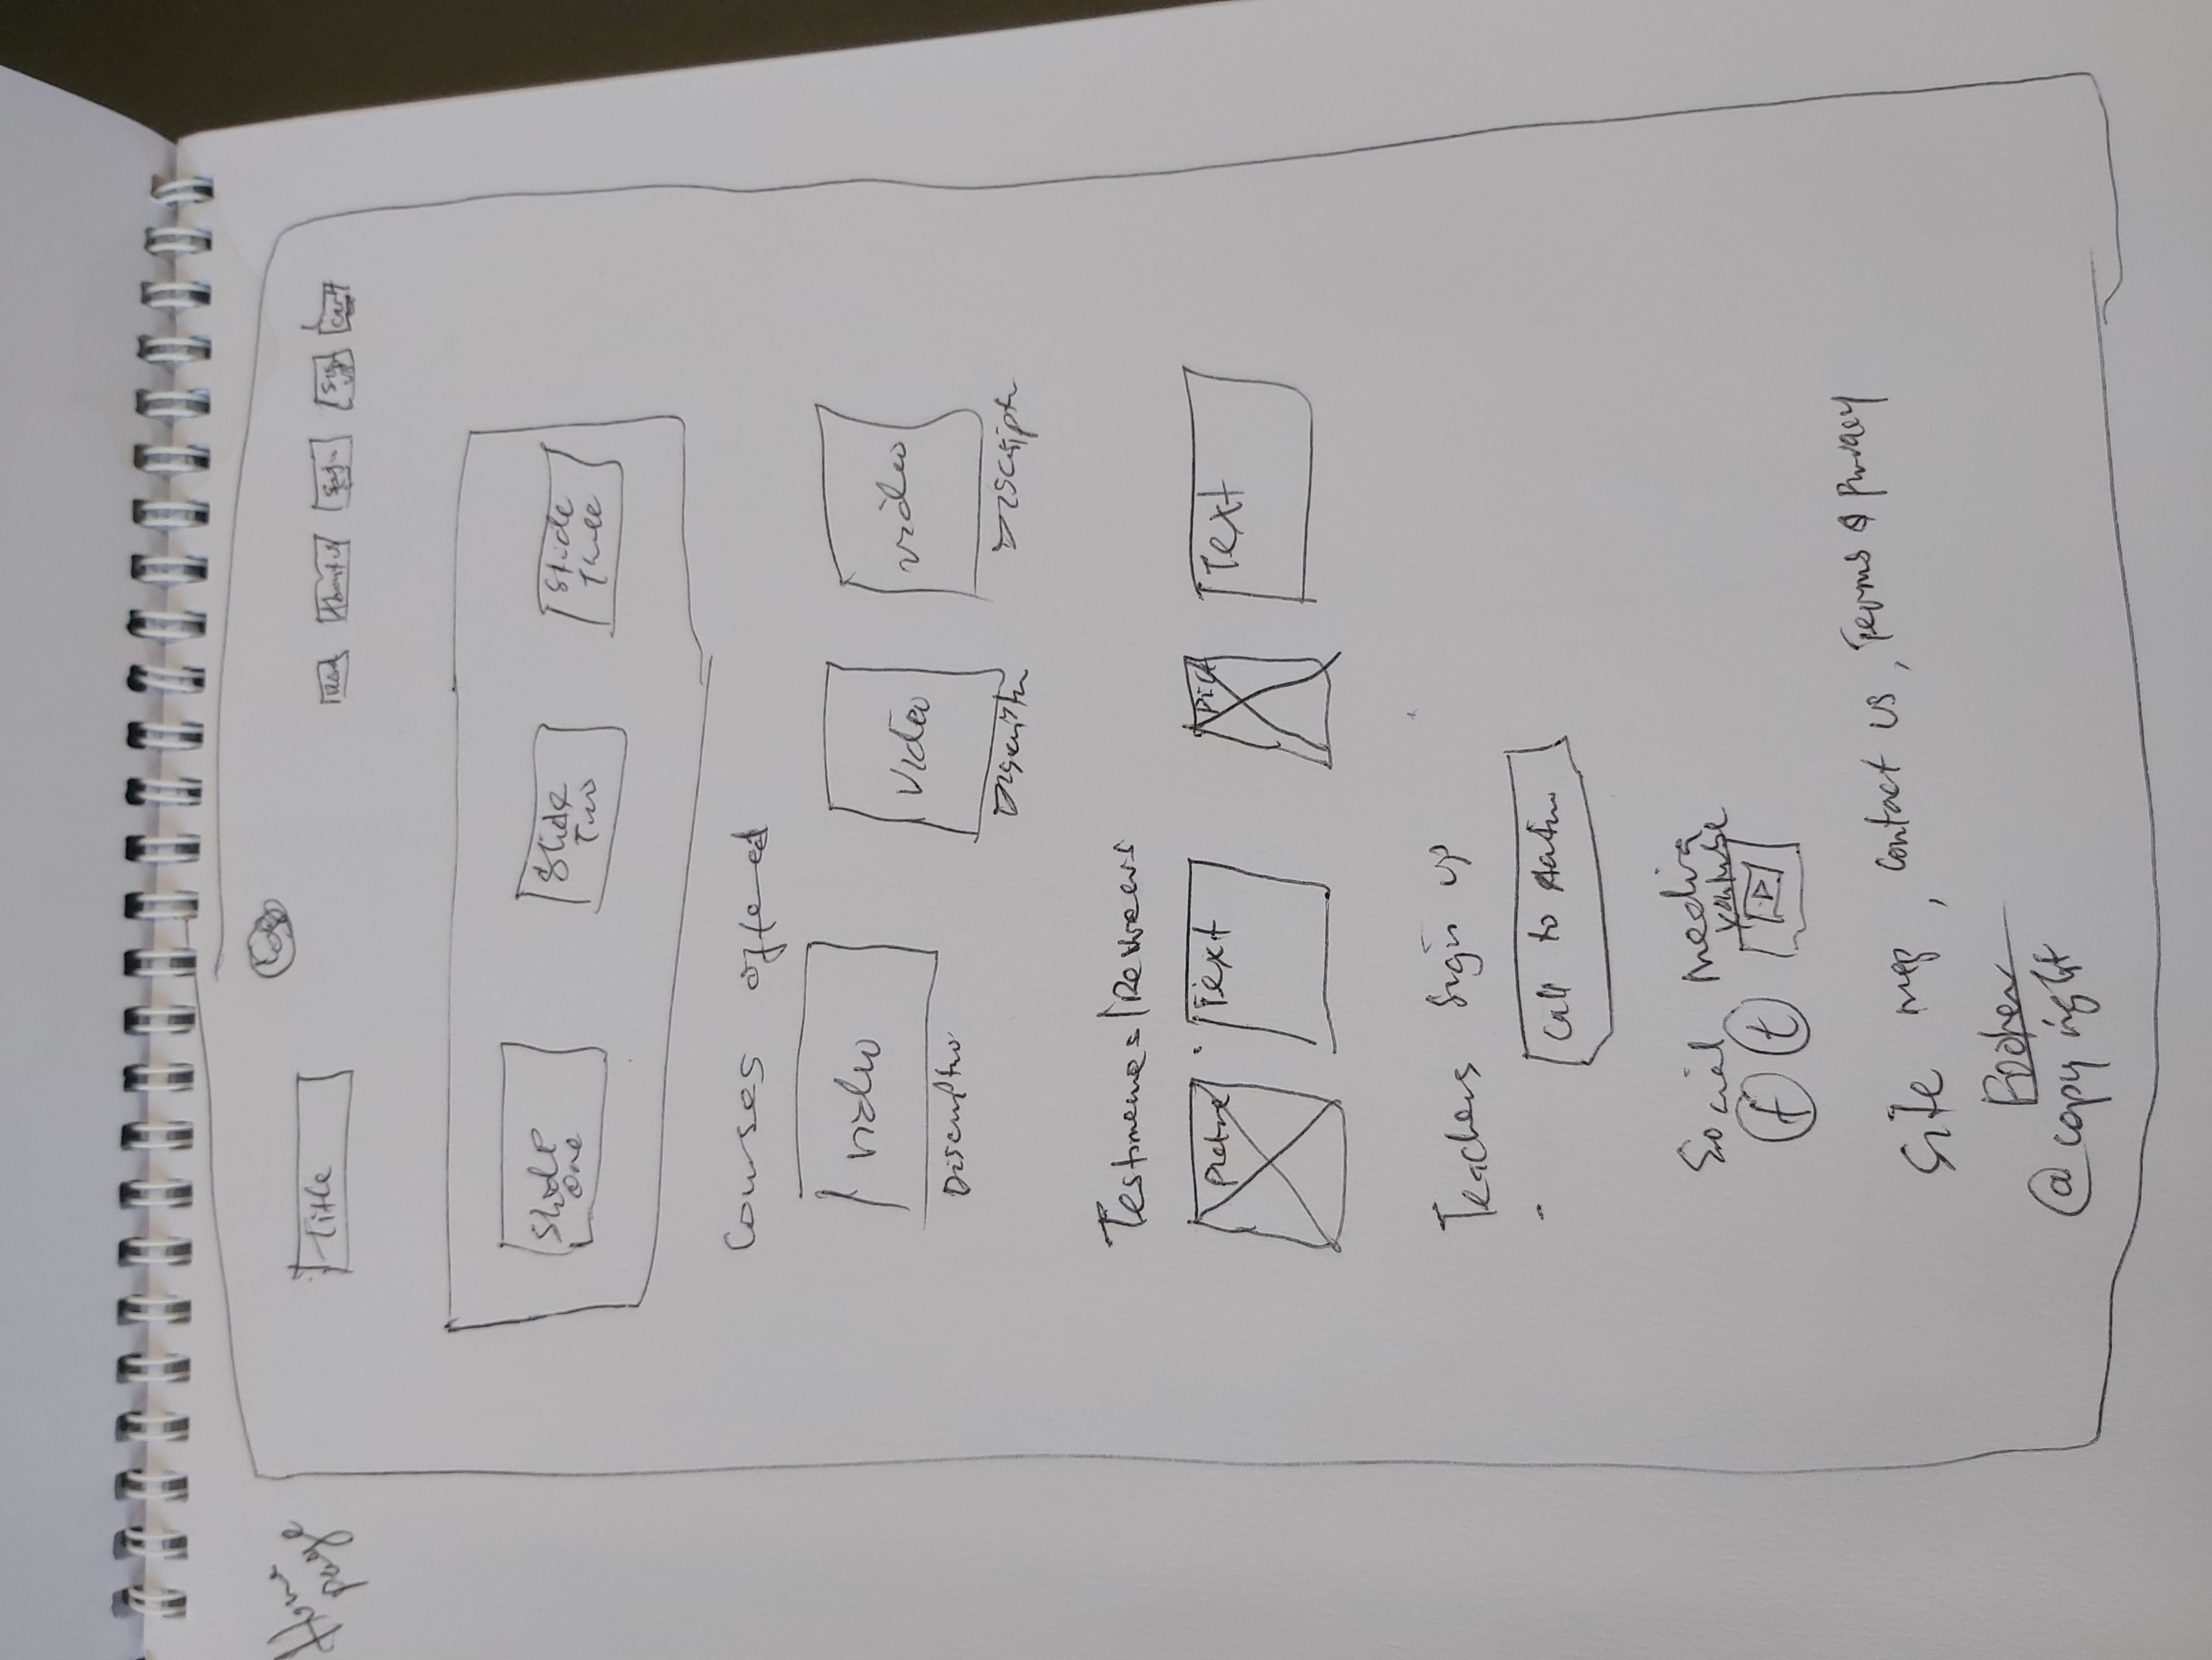 Home
page
Logo
Title
About us
Sign
up
Cart
Slide
one
Slide
Two
Slide
Three
Courses offered
video
Video
video
Discription
Discription
Discription
Testimonies/Reviews
Picture
Text
Pict
Text
Teachers Sign up
Call to Action
Social media
youtube
f t
Site map, Contact us, Terms & Privacy
Footer
@ copy right